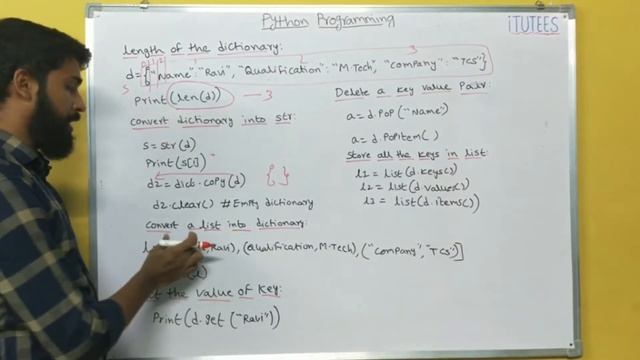 Python Programming
iTUTEES
length of the dictionary:
d={"Name":"Ravi", "Qualification":"M.Tech", "Company":"TCS"}
Print(len(d)) — 3
Convert dictionary into str:
S=str(d)
Print(s[1])
d2=dict.copy(d) { }
d2.clear() # Empty dictionary
Convert a list into dictionary:
Ravi), (Qualification, M.Tech), ("Company", "TCS")]
the value of key:
Print(d.get("Ravi"))
Delete a key value Pair:
a=d.POP("Name")
a=d.POPitem()
Store all the keys in list:
l1=list(d.keys())
l2=list(d.values())
l3=list(d.items())